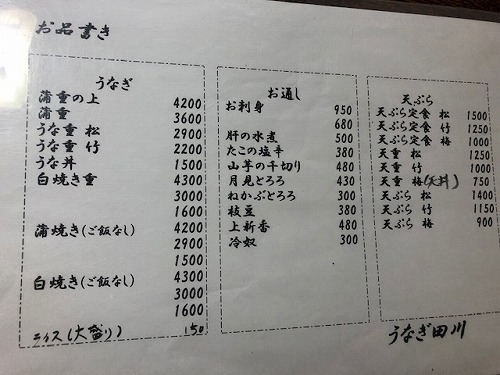 お品書き
うなぎ
蒲重の上 4200
蒲重 3600
うな重 松 2900
うな重 竹 2200
うな丼 1500
白焼き重 4300
3000
1600
蒲焼き(ご飯なし) 4200
2900
1500
白焼き(ご飯なし) 4300
3000
1600
ライス(大盛り) 150
お通し
お刺身 950
680
肝の水煮 500
たこの塩辛 380
山芋の千切り 480
月見とろろ 430
ねかぶとろろ 300
枝豆 380
上新香 480
冷奴 300
天ぷら
天ぷら定食 松 1500
天ぷら定食 竹 1250
天ぷら定食 梅 1000
天重 松 1250
天重 竹 1000
天重 梅(天丼) 750
天ぷら 松 1400
天ぷら 竹 1150
天ぷら 梅 900
うなぎ田川